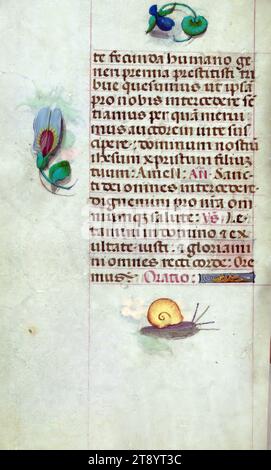 te fecunda humano ge
neri premia prestitisti tri
bue quesumus ut ipsa
pro nobis intercedere se
tiamus per quam merui
mus auctorem uite sus
cipere. dominum nostrũ
ihesum xp̃istum filium
tuum. Amen. Añ. Sanc
ti dei omnes intercedere
dignemini pro nr̃a om
niumq; salute. Vs̃. Le
tamini in domino & ex
ultate iusti. & gloriami
ni omnes recti corde. Ore
mus. Oratio:
alamy
Image ID: 2T8YT3C
www.alamy.com